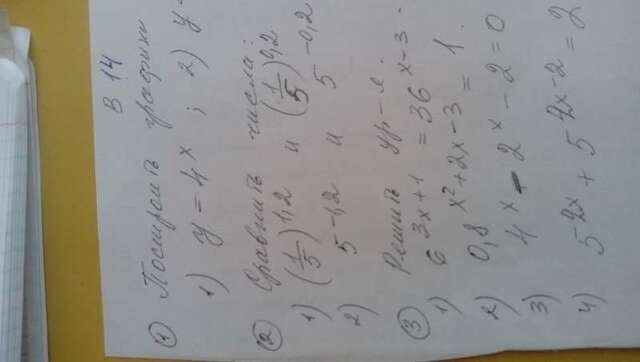 В 14
① Построить графики
1) y = 4^x ; 2) y
② Сравнить числа:
1) (1/5)^1,2 и (1/5)^0,2
2) 5^-1,2 и 5^-0,2
③ Решить ур-я.
1) 6^3x+1 = 36^x-3.
2) 0,8^x²+2x-3 = 1.
3) 4^x - 2^x - 2 = 0
4) 5^2x + 5^2x-2 = 2